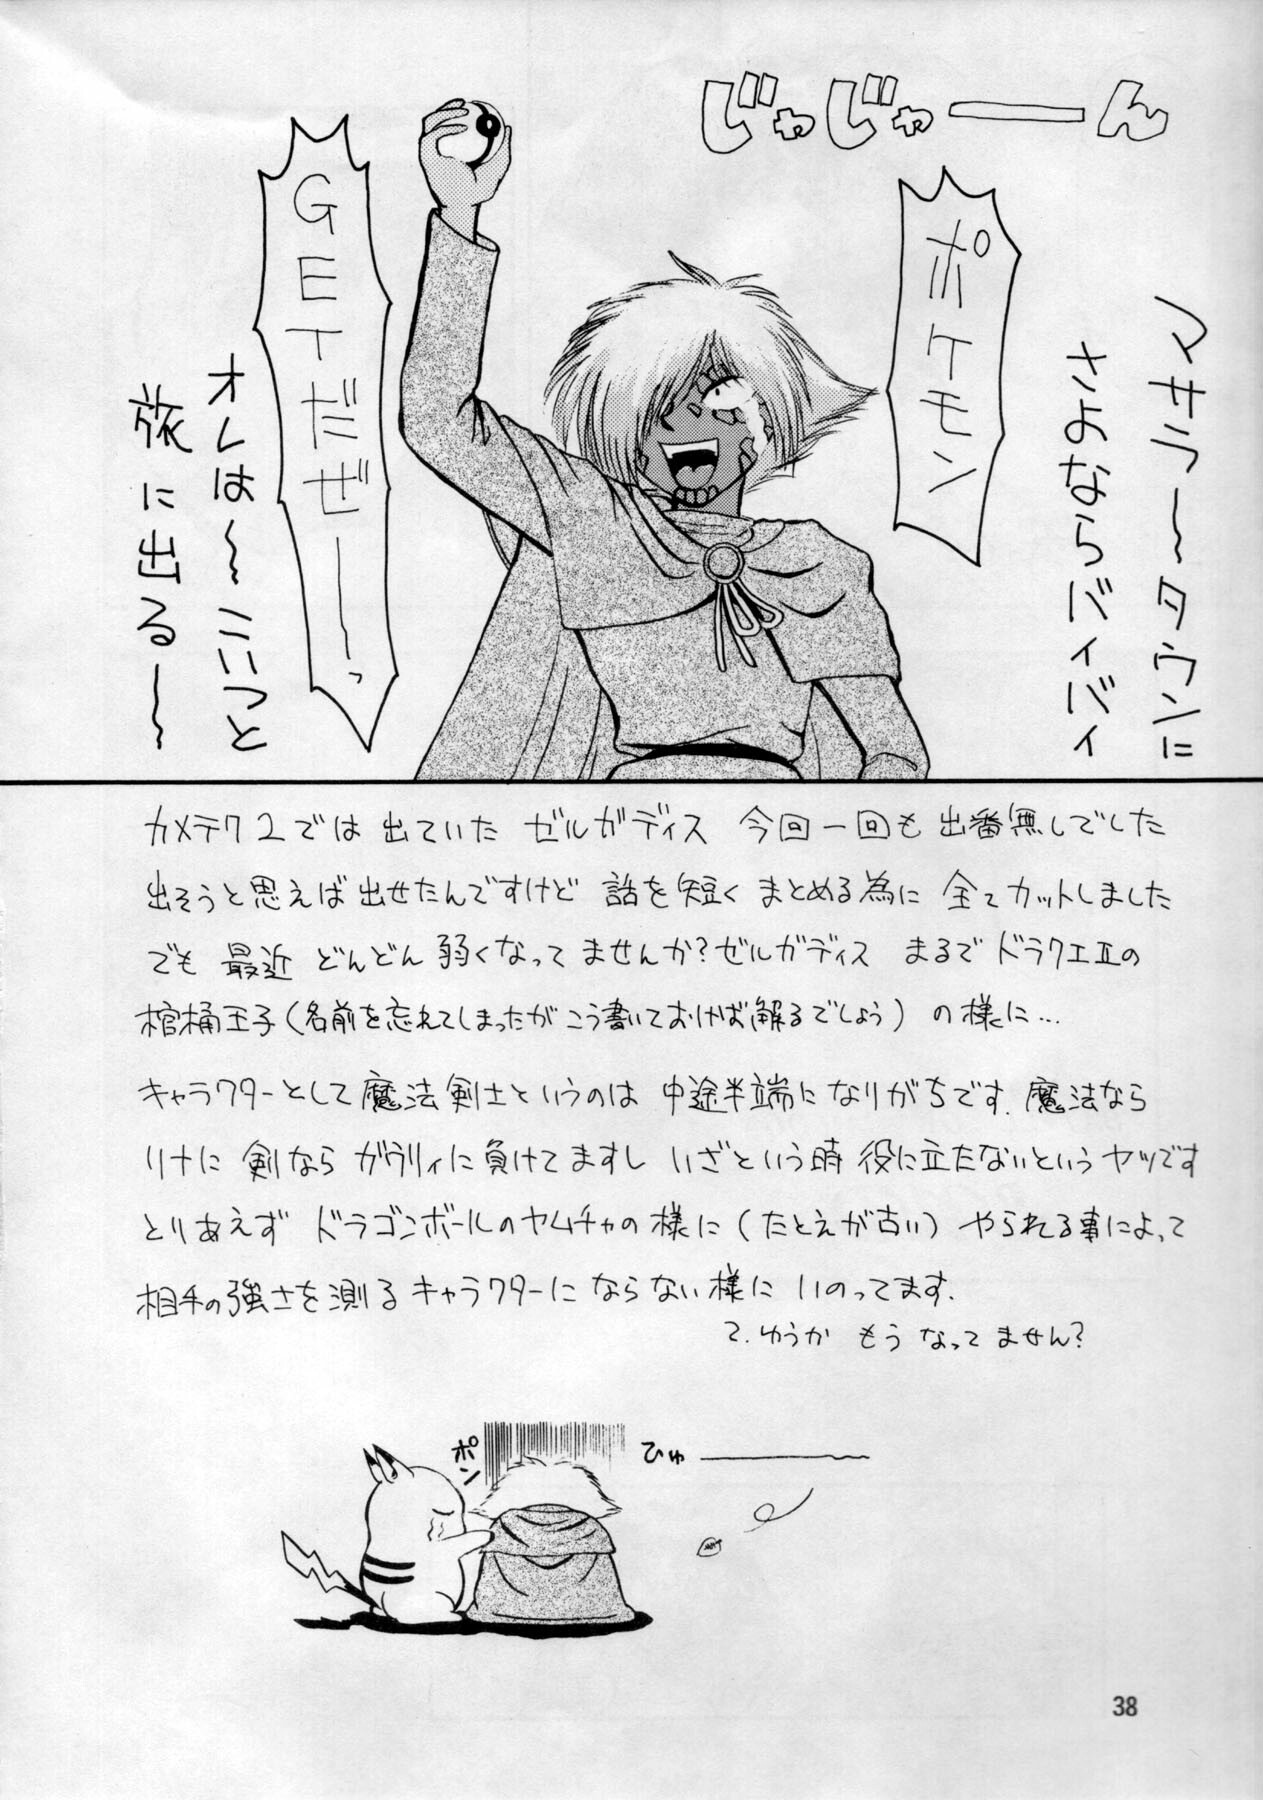 じゃじゃーん
ポケモン
GETだぜーっ
マサラ〜タウンに
さよならバイバイ
オレは〜こいつと
旅に出る〜
カメテク2では出ていた ゼルガディス 今回一回も出番無しでした
出そうと思えば出せたんですけど 話を短く まとめる為に 全てカットしました
でも 最近 どんどん弱くなってませんか?ゼルガディス まるでドラクエⅡの
棺桶王子(名前を忘れてしまったがこう書いておけば解るでしょう)の様に…
キャラクターとして魔法剣士というのは 中途半端になりがちです.魔法なら
リナに 剣なら ガウリィに負けてますし いざという時 役に立たないというヤツです
とりあえず ドラゴンボールのヤムチャの様に(たとえが古い) やられる事によって
相手の強さを測るキャラクターにならない様に いのってます.
て.ゆうか もう なってません?
ポン
ひゅー
38